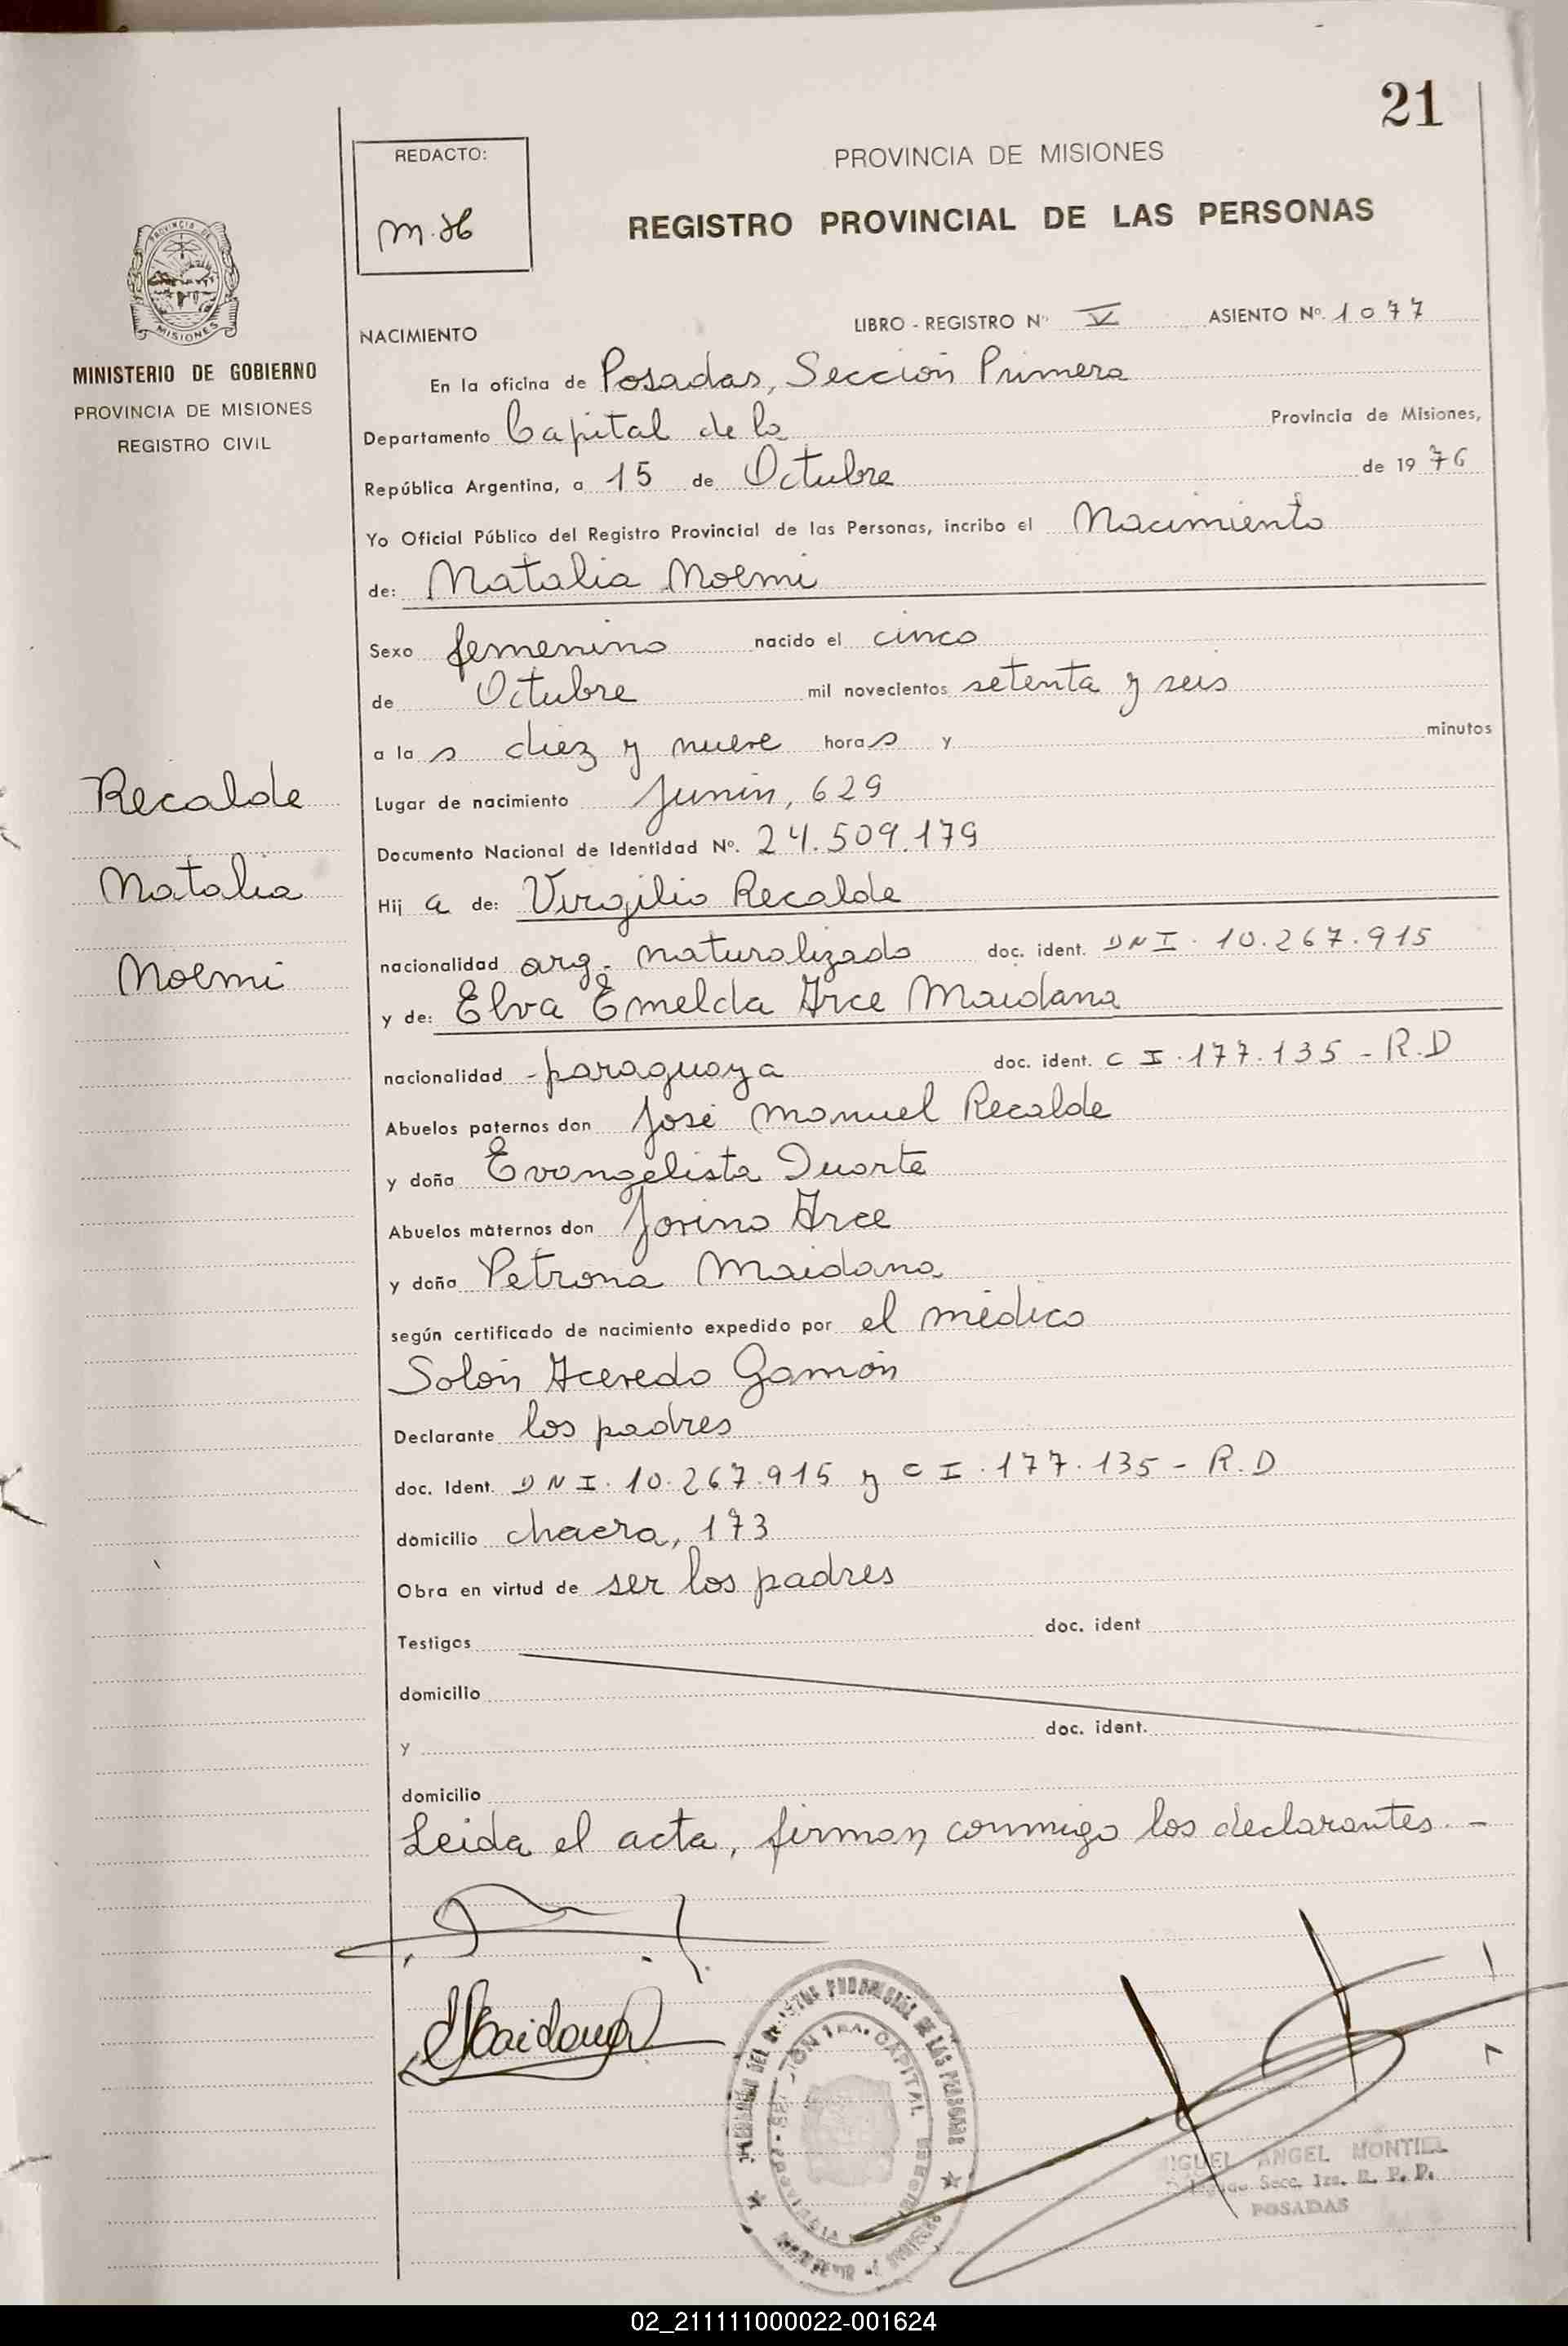 21
REDACTO:
PROVINCIA DE MISIONES
REGISTRO PROVINCIAL DE LAS PERSONAS
PROVINCIA DE
MISIONES
MINISTERIO DE GOBIERNO
PROVINCIA DE MISIONES
REGISTRO CIVIL
NACIMIENTO LIBRO - REGISTRO Nº V ASIENTO Nº. 1077
En la oficina de Posadas, Sección Primera
Departamento Capital de la Provincia de Misiones,
República Argentina, a 15 de Octubre de 1976
Yo Oficial Público del Registro Provincial de las Personas, incribo el Nacimiento
de: Natalia Noemi
Sexo femenino nacido el cinco
de Octubre mil novecientos setenta y seis
a la s diez y nueve horas y minutos
Recalde
Natalia
Noemi
Lugar de nacimiento Junin, 629
Documento Nacional de Identidad Nº. 24.509.179
Hij a de: Virgilio Recalde
nacionalidad arg. naturalizado doc. ident. DNI. 10.267.915
y de: Elva Emelda Arce Maidana
nacionalidad paraguaya doc. ident. CI. 177.135 - R.D
Abuelos paternos don José Manuel Recalde
y doña Evangelista Duarte
Abuelos maternos don Jovino Arce
y doña Petrona Maidana
según certificado de nacimiento expedido por el médico
Solón Acevedo Gamón
Declarante los padres
doc. Ident. DNI. 10.267.915 y CI. 177.135 - R.D
domicilio chacra, 173
Obra en virtud de ser los padres
Testigos doc. ident
domicilio
y doc. ident.
domicilio
Leida el acta, firman conmigo los declarantes. -
EMaidana
DEL REGISTRO PROVINCIAL DE LAS PERSONAS
SECCION 1RA. CAPITAL
MIGUEL ANGEL MONTIEL
Secc. 1ra. R. P. P.
POSADAS
02_211111000022-001624